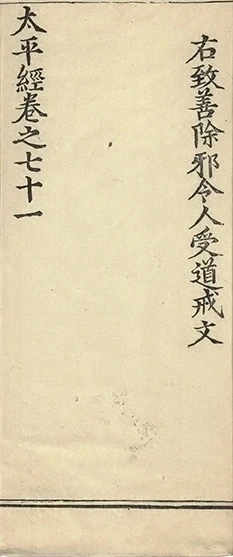 右致善除邪令人受道戒文
太平經卷之七十一